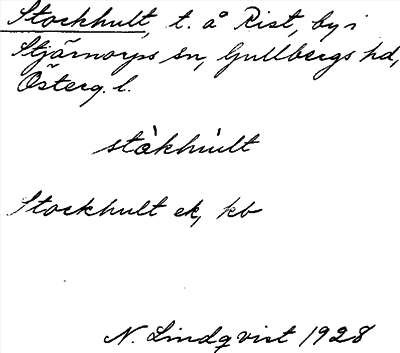 Stockhult, t. å Rist, by i
Stjärnorps sn, Gullbergs hd,
Österg. l.
stàkhùlt
Stockhult ek, kb
N. Lindqvist 1928